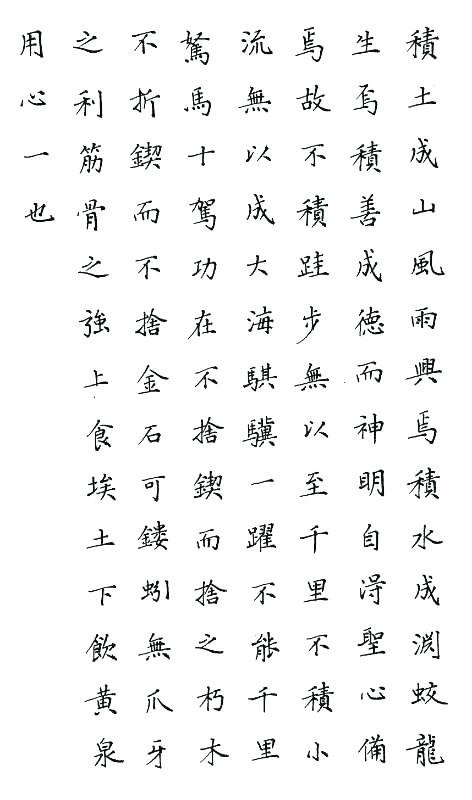 積土成山風雨興焉積水成淵蛟龍
生焉積善成德而神明自得聖心備
焉故不積跬步無以至千里不積小
流無以成大海騏驥一躍不能千里
駑馬十駕功在不捨鍥而捨之朽木
不折鍥而不捨金石可鏤蚓無爪牙
之利筋骨之強上食埃土下飲黃泉
用心一也